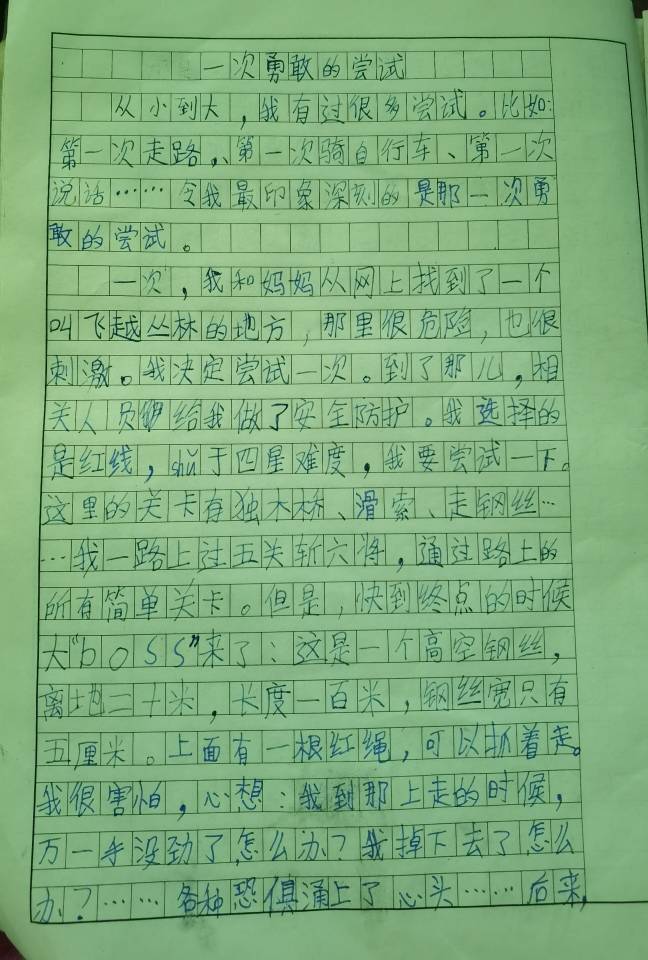 一次勇敢的尝试
从小到大，我有过很多尝试。比如：
第一次走路、第一次骑自行车、第一次
说话……令我最印象深刻的是那一次勇
敢的尝试。
一次，我和妈妈从网上找到了一个
叫飞越丛林的地方，那里很危险，也很
刺激。我决定尝试一次。到了那儿，相
关人员给我做了安全防护。我选择的
是红线，shǔ于四星难度，我要尝试一下。
这里的关卡有独木桥、滑索、走钢丝…
…我一路上过五关斩六将，通过路上的
所有简单关卡。但是，快到终点的时候
大“boss”来了：这是一个高空钢丝，
离地二十米，长度一百米，钢丝宽只有
五厘米。上面有一根红绳，可以抓着走。
我很害怕，心想：我到那上走的时候，
万一手没劲了怎么办？我掉下去了怎么
办？……各种恐惧涌上了心头……后来，